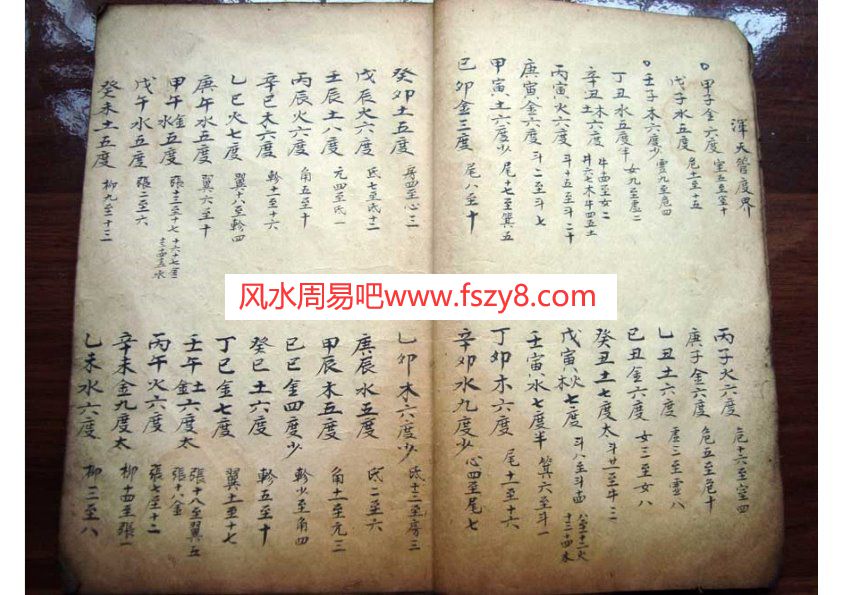 渾天管度界
甲子金六度 室五至室十
丙子火六度 危十六至室四
戊子水五度 危十一至十五
庚子金六度 危五至危十
壬子木六度少 虛九至危四
乙丑土六度 虛三至虛八
丁丑水五度半 女九至虛二
己丑金六度 女三至女八
辛丑土木六度 牛四至女二
癸丑土七度太 斗廿一至牛三
丙寅火六度 斗十五至斗二十
戊寅火木七度 斗八至斗十四
八至十二火
十三十四木
庚寅金六度 斗二至斗七
壬寅水七度半 箕六至斗一
甲寅土六度少 尾十七至箕五
丁卯木六度 尾十一至十六
己卯金三度 尾八至十
辛卯水九度少 心四至尾七
风水周易吧www.fszy8.com
癸卯土五度 房四至心三
乙卯木六度少 氐十三至房三
戊辰火六度 氐七至氐十二
庚辰水五度 氐二至六
壬辰土八度 亢四至氐一
甲辰木五度 角十一至亢三
丙辰火六度 角五至十
己巳金四度少 軫少至角四
辛巳木六度 軫十一至十六
癸巳土六度 軫五至十
乙巳火七度 翼十八至軫四
丁巳金七度 翼十一至十七
庚午水五度 翼六至十
壬午土金六度太 張十八至翼五
張十八金
甲午金水六度 張十三至十七
十六十七金
十三十四十五水
丙午火六度 張七至十二
戊午水五度 張二至六
辛未金九度太 柳十四至張一
癸未土五度 柳九至十三
乙未水六度 柳三至八